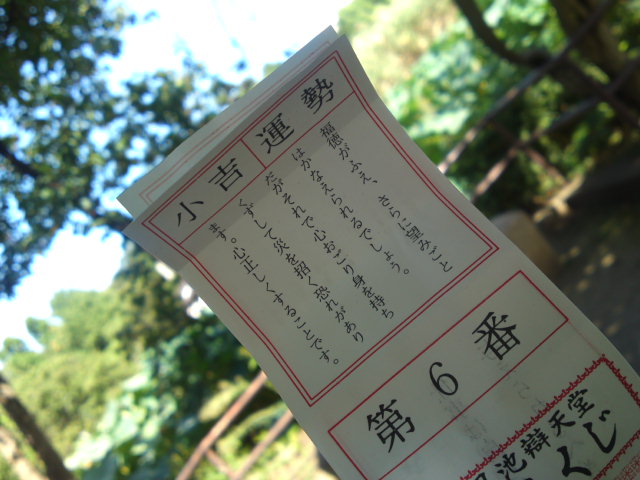 運勢
小吉
福徳がふえ、さらに望みごと
はかなえられるでしょう。
だがそれで心おごり身を持ち
くずして災を招く恐れがあり
ます。心正しくすることです。
第6番
池辯天堂
くじ